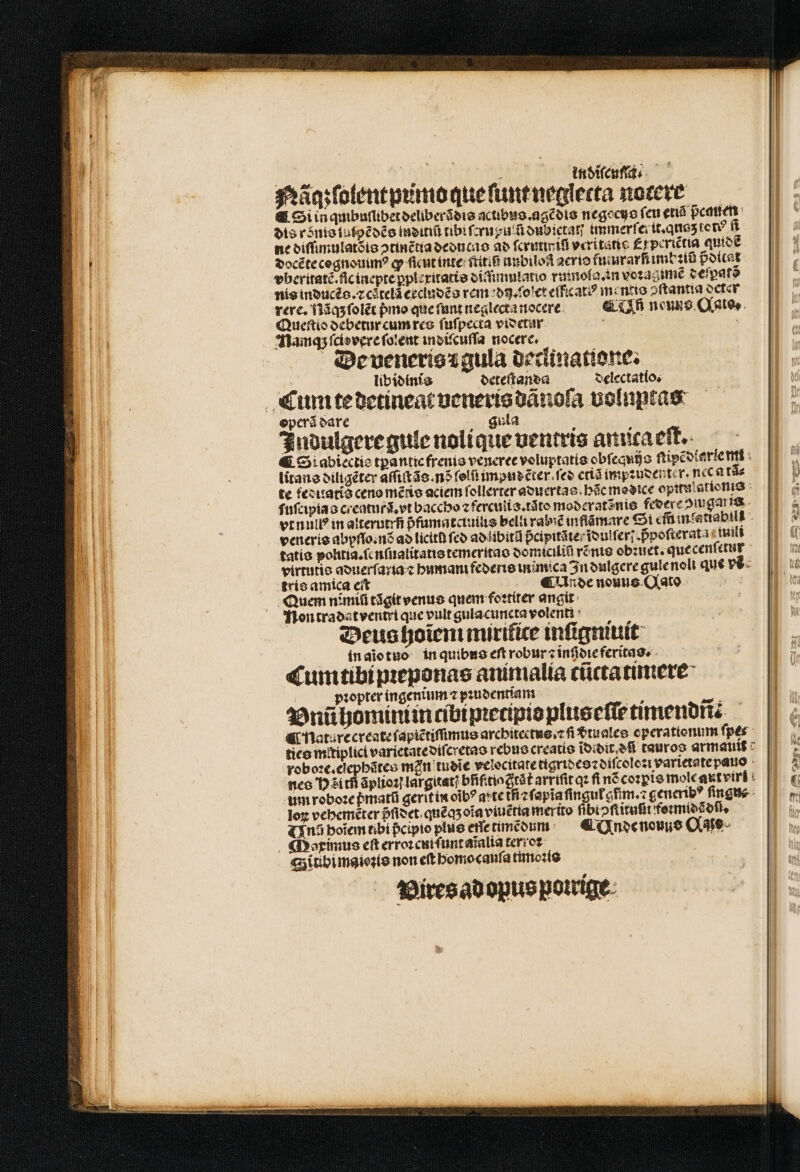 indiſcuſſa.
Nãqꝫ ſolent primo que ſunt neglecta nocere
¶ Si in quibuſlibet deliberãdis actibus .agẽdis negocijs ſeu etiã p̄cauen
dis rõnis ſuſpẽdẽs iuditiũ tibi ſcrupulũ dubietatꝭ immerſerit.quoꝫ totꝰ ſi
ne diſſimulatõis ↄtinẽtia deducas ad ſcrutiniũ veritatis Experiẽtia quidẽ
docẽte cognouimꝰ ꝙ ſicut inter ſitiũ nubiloſi aeris futurarũ imbriũ p̄dicat
vbertatẽ.ſic inepte ꝑplexitatis diſſimulatio ruinoſa.in voraginẽ deſparõ
nis inducẽs.⁊ cãtelã excludẽs remedij.ſolet efficatiꝰ mentis ↄſtantia deter
rere. Nãqꝫ ſolẽt p̄mo que ſunt neglecta nocere ¶ Uñ nouus Cato.
Queſtio debetur cum res ſuſpecta videtur
Namqꝫ ſcio vere ſolent indiſcuſſa nocere.
De veneris ⁊ gula declinatione.
libidinis deteſtanda delectatio.
Cum te detineat veneris dãnoſa voluptas
operã dare gula
Indulgere gule noli que ventris amica eſt.
¶ Si abiectis tꝑantie frenis veneree voluptatis obſequijs ſtipẽdiarie mi
litans diligẽter affictãs.nõ ſolũ impudẽter.ſed etiã imprudenter. nec a tã
te feditatis ceno mẽtis aciem ſollerter aduertas.hãc modice opitulationis
ſuſcipias creaturã.vt baccho ⁊ ferculis.tãto moderatõnis federe ↄiugaris
vt nullꝰ in alterutrũ p̄ſumat ciuilis belli rabiẽ inflãmare Si eñ inſatiabili
veneris abyſſo.nõ ad licitũ ſed ad libitũ p̄cipitãter idulſerꝭ.p̄poſterata ciuili
tatis politia.ſenſualitatis temeritas domiciliũ rõnis obruet. que cenſetur
virtutis aduerſaria ⁊ humani federis inimica Indulgere gule noli que vẽ
tris amica eſt ¶ Unde nouus Cato
Quem nimiũ tãgit venus quem fortiter angit
Non tradat ventri que vult gula cuncta volenti
Deus hoīem mirifice inſigniuit
in aīo tuo in quibus eſt robur ⁊ inſidie feritas.
Cum tibi preponas animalia cũcta timere
propter ingenium ⁊ prudentiam
Vnũ homini in cibi precipio plus eſſe timendũ
¶ Nature create ſapiẽtiſſimus architectus.⁊ ſi ꝟtuales operationum ſpe
ties mĺtiplici varietate diſcretas rebus creatis ĩdidit.dũ tauros armauit
robore.elephãtes magnitudie velocitate tigrides ⁊ diſcolori varietate pauo
nes
um robore p̄matũ gerit in oībꝰ arte tñ ⁊ ſapīa ſinguĺ
loꝝ vehemẽter p̄ſidet.quẽqꝫ oīa viuẽtia merito ſibi ↄſtituſit formidãdũ.
Unũ hoīem tibi p̄cipio plus eſſe timẽdum ¶ Unde nouus Cato
Maximus eſt error cui ſunt aīalia terror
Si tibi maioris non eſt homo cauſa timoris
Vires ad opus porrige